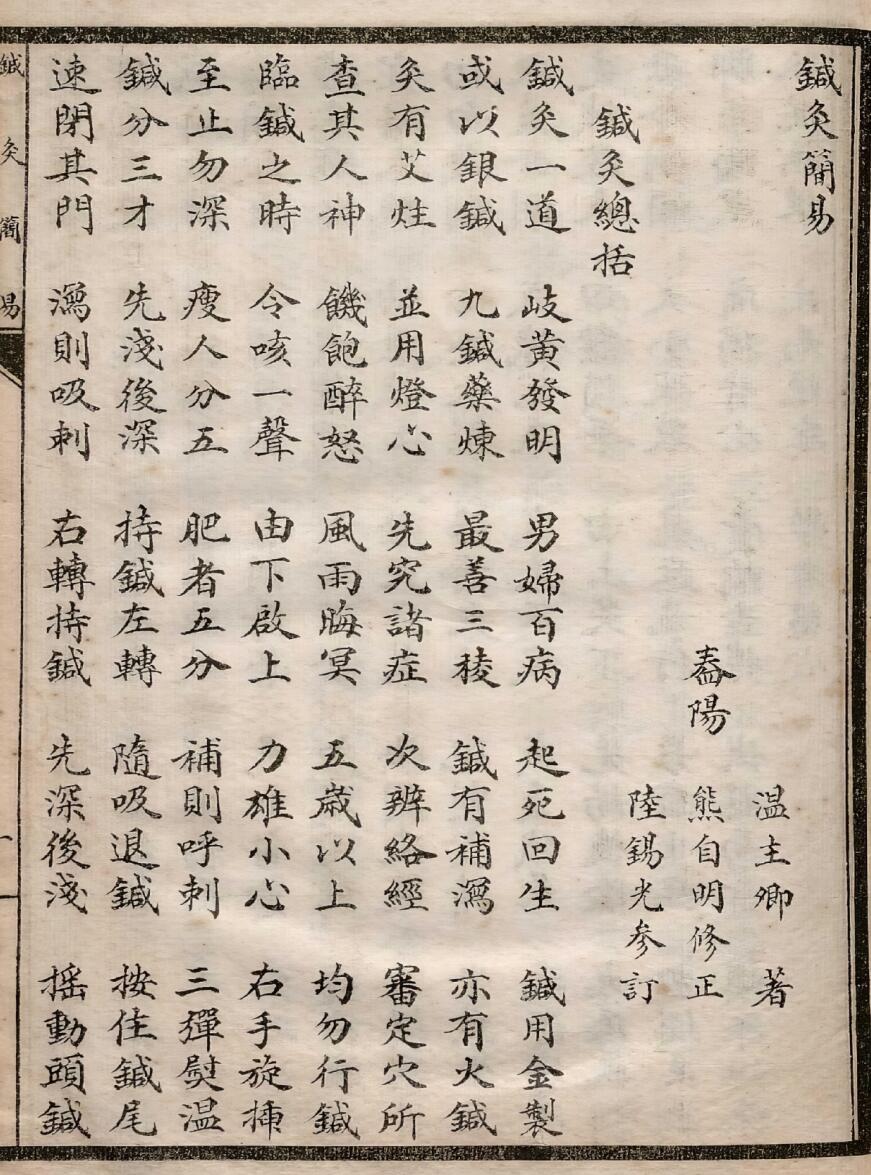 鍼灸簡易
溫主卿 著
盋陽 熊自明修正
陸錫光參訂
鍼灸總括
鍼灸一道 岐黃發明 男婦百病 起死回生 鍼用金製
或以銀鍼 九鍼藥煉 最善三稜 鍼有補瀉 亦有火鍼
灸有艾炷 並用燈心 先究諸症 次辨絡經 審定穴所
查其人神 饑飽醉怒 風雨晦冥 五歲以上 均勿行鍼
臨鍼之時 令咳一聲 由下啟上 力雄小心 右手旋揷
至止勿深 瘦人分五 肥者五分 補則呼刺 三彈熨温
鍼分三才 先淺後深 持鍼左轉 隨吸退鍼 按住鍼尾
速閉其門 瀉則吸刺 右轉持鍼 先深後淺 搖動頭鍼
鍼灸簡易
一